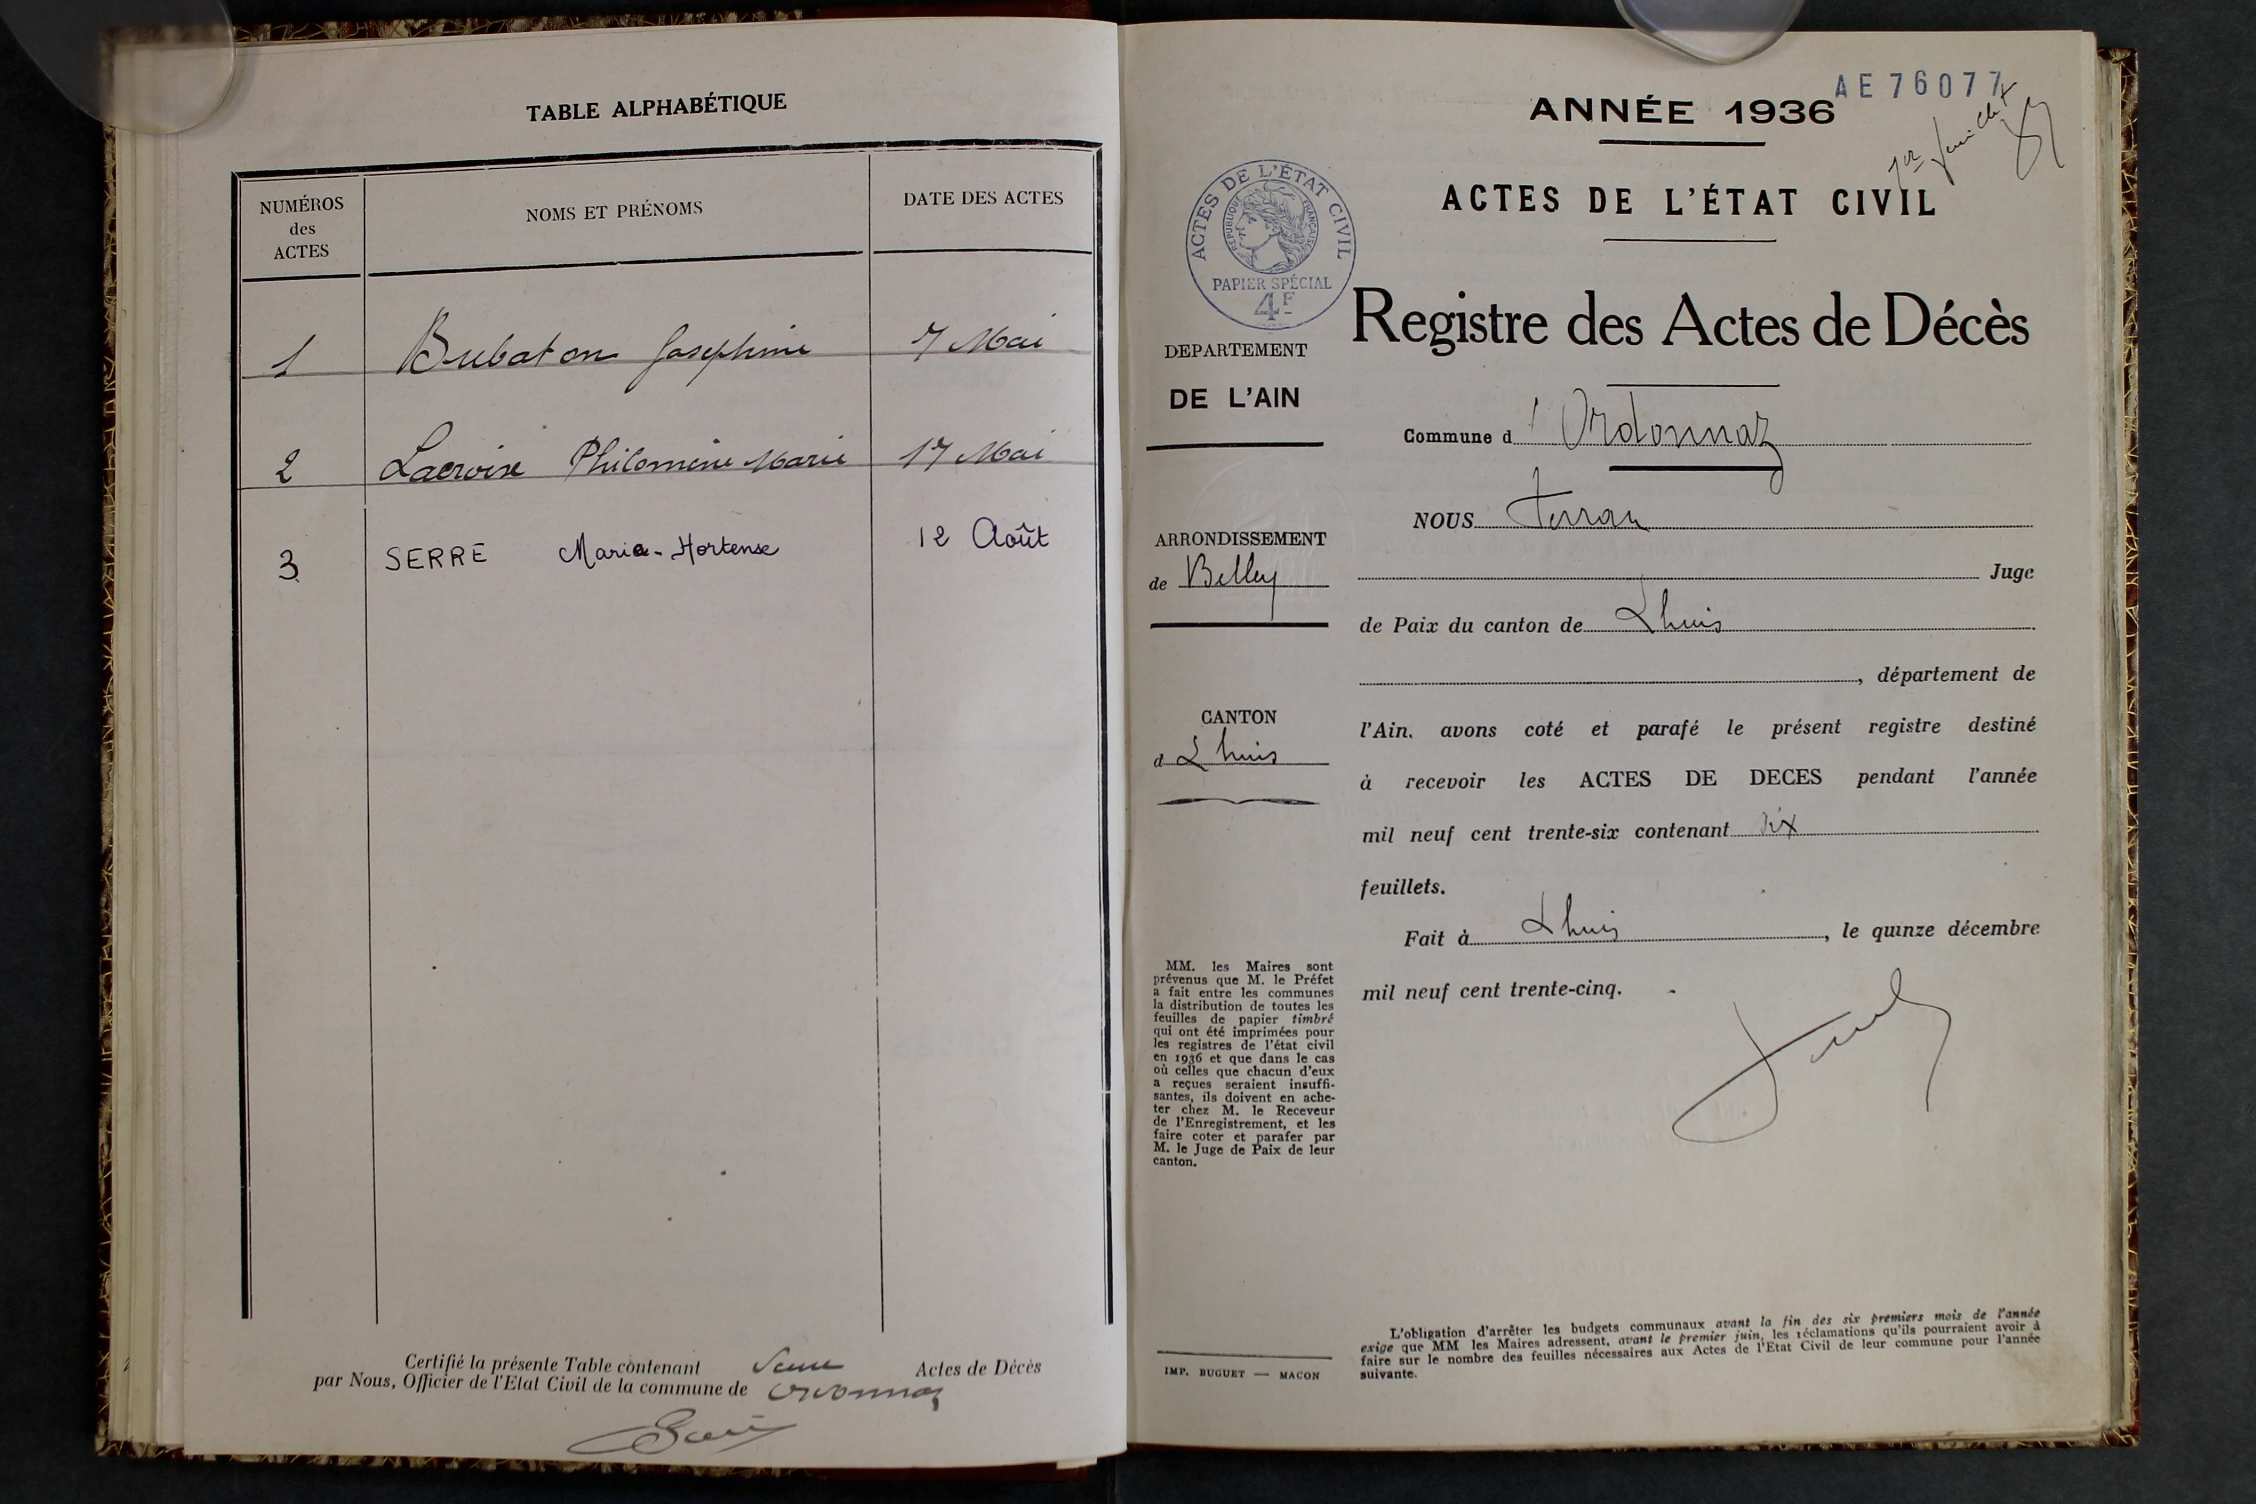 TABLE ALPHABÉTIQUE
NUMÉROS
des
ACTES
NOMS ET PRÉNOMS
DATE DES ACTES
1 Bubaton Joséphine 7 Mai
2 Lacroix Philomène Marie 17 Mai
3 SERRE Marie-Hortense 12 Août
Certifié la présente Table contenant Actes de Décès
par Nous, Officier de l'Etat Civil de la commune de Ordonnaz
AE 76077
ANNÉE 1936
1er feuillet
ACTES DE L'ÉTAT CIVIL
ACTES DE L'ÉTAT CIVIL
RÉPUBLIQUE FRANÇAISE
PAPIER SPÉCIAL
4F
Registre des Actes de Décès
DEPARTEMENT
DE L'AIN
Commune d'Ordonnaz
NOUS
ARRONDISSEMENT
de Belley
Juge
de Paix du canton de Lhuis
, département de
CANTON
d Lhuis
l'Ain, avons coté et parafé le présent registre destiné
à recevoir les ACTES DE DECES pendant l'année
mil neuf cent trente-six contenant six
feuillets.
Fait à Lhuis, le quinze décembre
mil neuf cent trente-cinq.
MM. les Maires sont
prévenus que M. le Préfet
a fait entre les communes
la distribution de toutes les
feuilles de papier timbré
qui ont été imprimées pour
les registres de l'état civil
en 1936 et que dans le cas
où celles que chacun d'eux
a reçues seraient insuffi-
santes, ils doivent en ache-
ter chez M. le Receveur
de l'Enregistrement, et les
faire coter et parafer par
M. le Juge de Paix de leur
canton.
IMP. BUGUET — MACON
L'obligation d'arrêter les budgets communaux avant la fin des six premiers mois de l'année
exige que MM les Maires adressent, avant le premier juin, les réclamations qu'ils pourraient avoir à
faire sur le nombre des feuilles nécessaires aux Actes de l'Etat Civil de leur commune pour l'année
suivante.